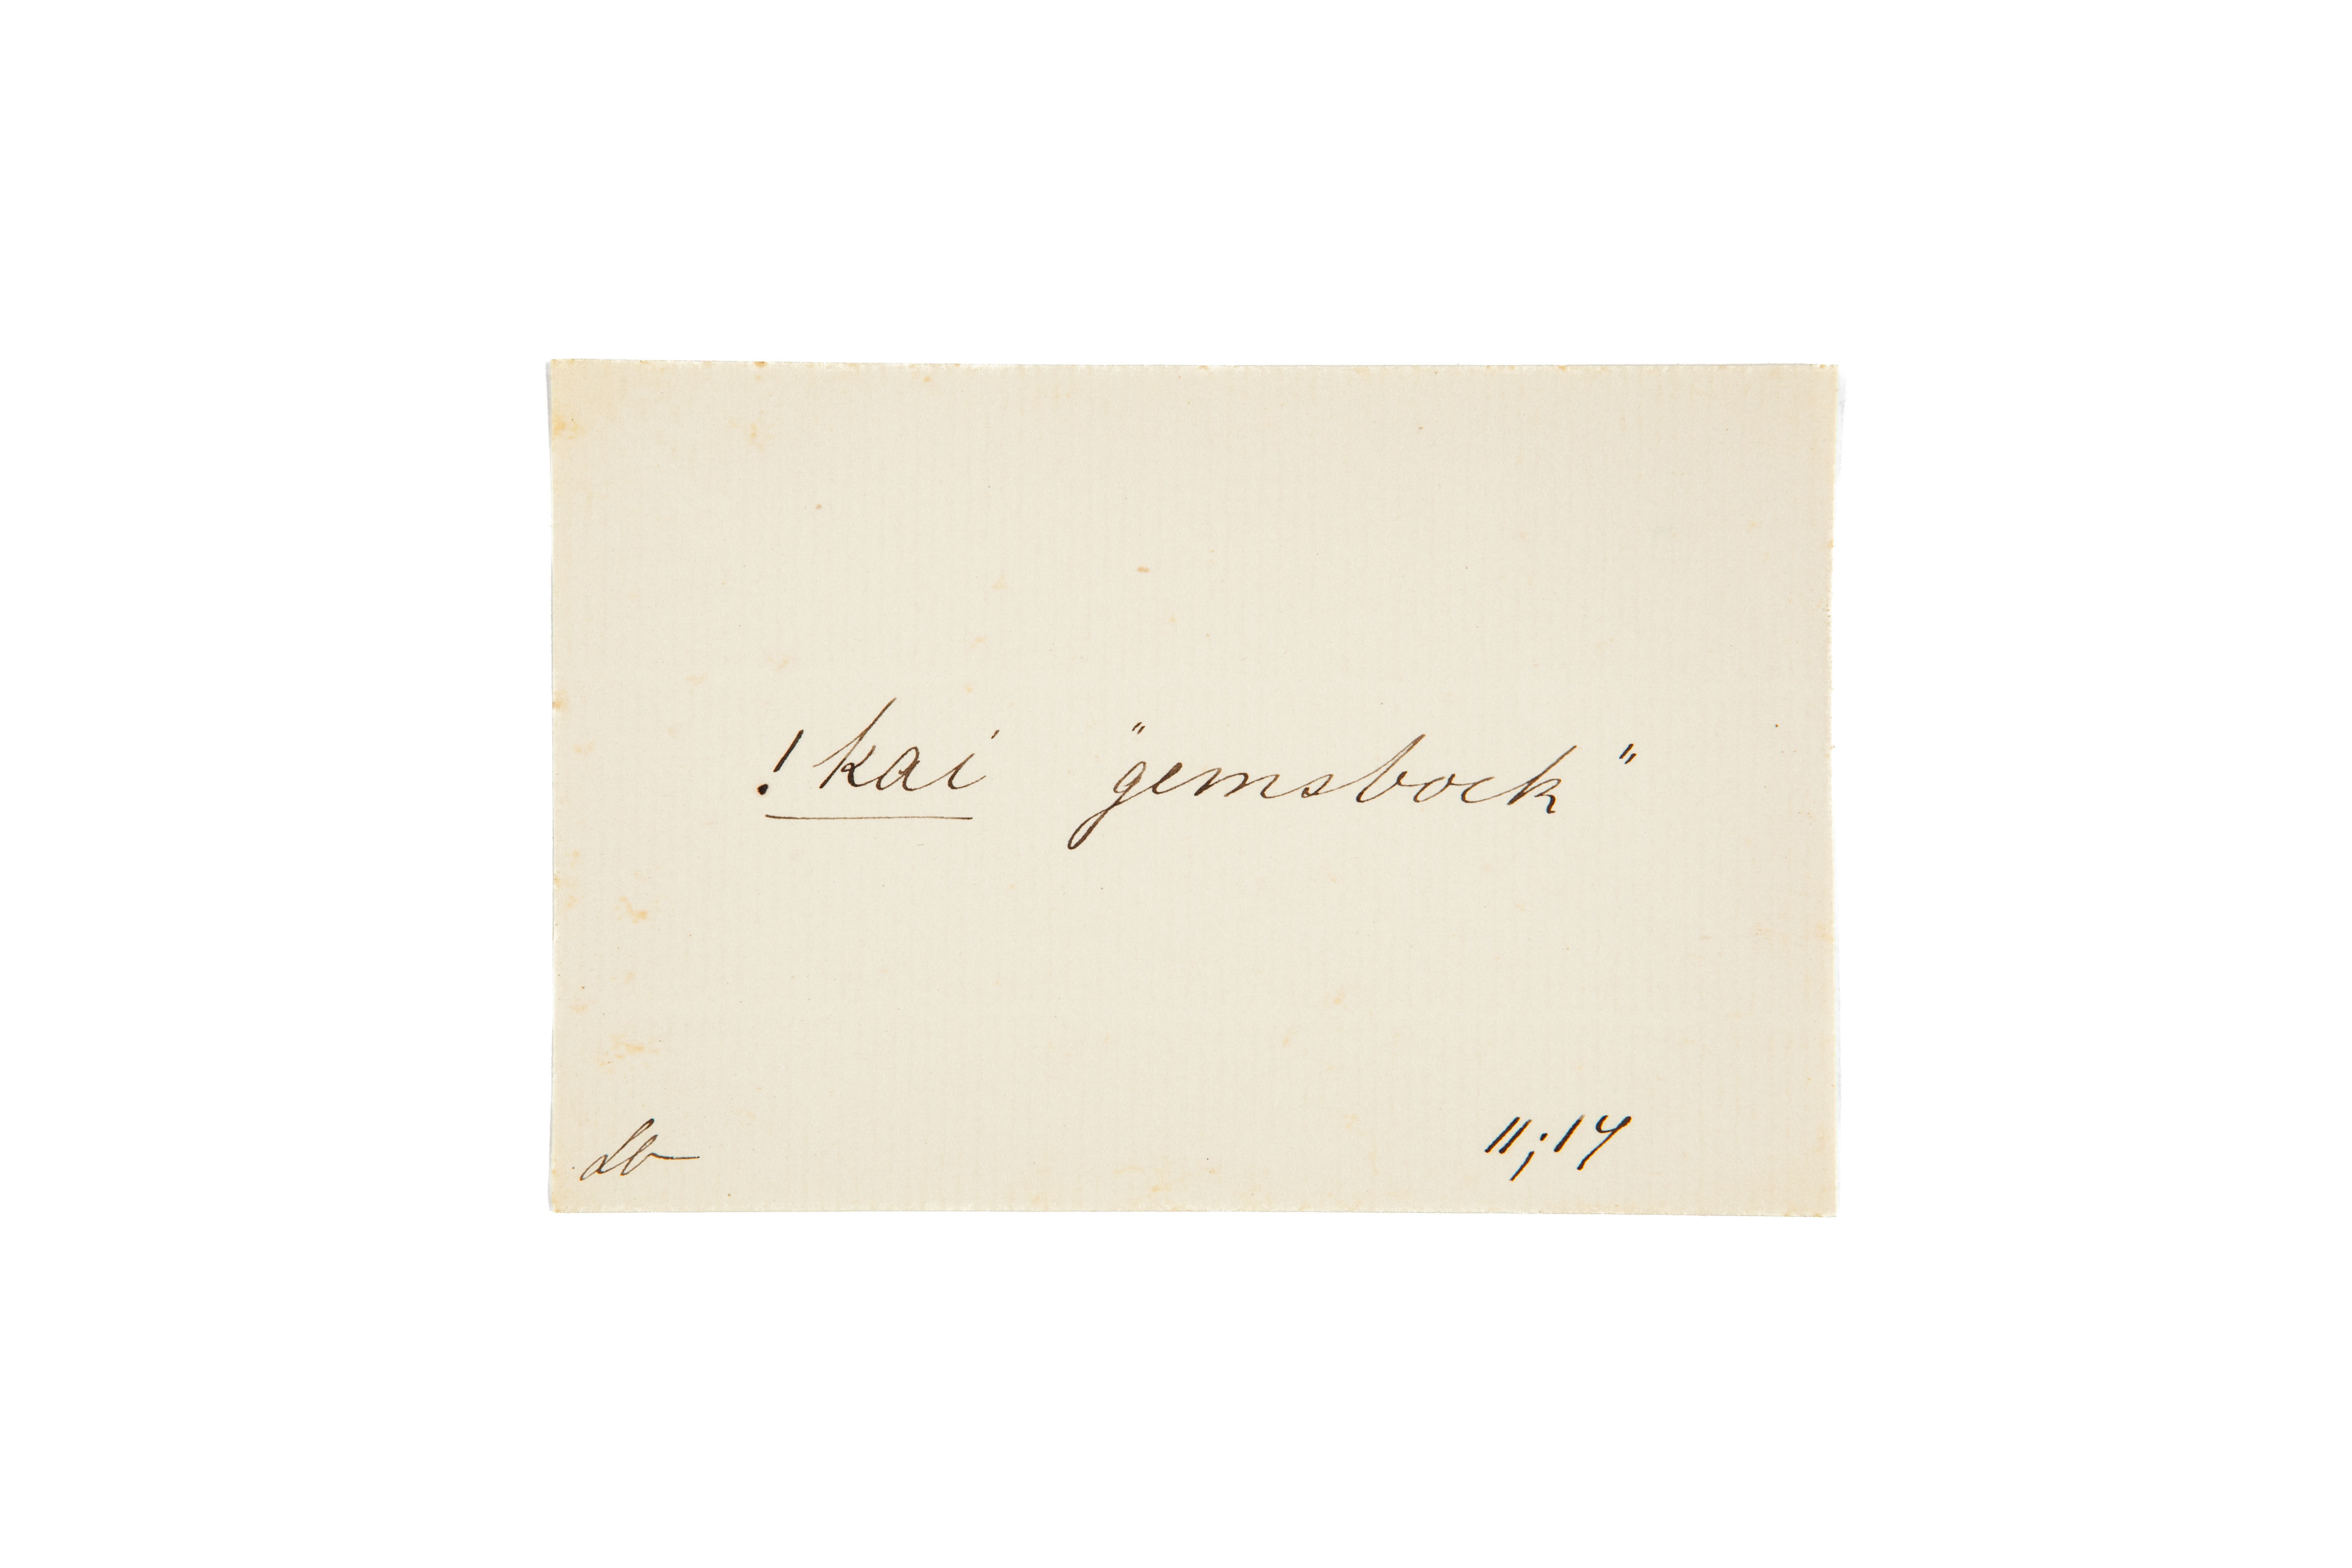 !kai "gemsbock"
Lb 11;14